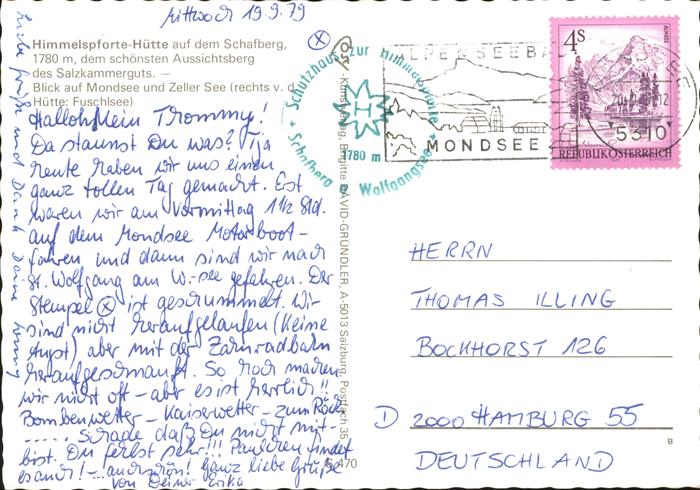 Mittwoch 19.9.79
Himmelspforte-Hütte auf dem Schafberg,
1780 m, dem schönsten Aussichtsberg
des Salzkammerguts. —
Blick auf Mondsee und Zeller See (rechts v. d.
Hütte: Fuschlsee)
Halloh Mein Trommy!
Da staunst Du was? Tja
heute haben wir uns einen
ganz tollen Tag gemacht. Erst
waren wir am Vormittag 1 1/2 Std.
auf dem Mondsee Motorboot-
fahren und dann sind wir nach
St. Wolfgang am W.-see gefahren. Der
Stempel ⓧ ist geschummelt. Wir
sind nicht heraufgelaufen (Keine
Angst) aber mit der Zahnradbahn
heraufgeschnauft. So hoch machen
wir nicht oft - aber es ist herrlich!!
Bombenwetter - Kaiserwetter - zum Röck-
..... schade daß Du nicht mit-
bist. Du fehlst sehr!!! Paulchen findet
es auch! - auch schön! Ganz liebe Grüße
von Deiner Erika
Liebe Grüße und Dank Deine
ⓧ
Schutzhaus zur Himmelspforte
H
1780 m
Schafberg a. Wolfgangsee
Kunstverlag, Brigitte DAVID-GRÜNDLER, A-5013 Salzburg, Postfach 35
470
ALPENSEEBA
MONDSEE
MONDSEE
20.
12
5310
4S
ALMSEE
REPUBLIK ÖSTERREICH
HERRN
THOMAS ILLING
BOCKHORST 126
D 2000 HAMBURG 55
B
DEUTSCHLAND